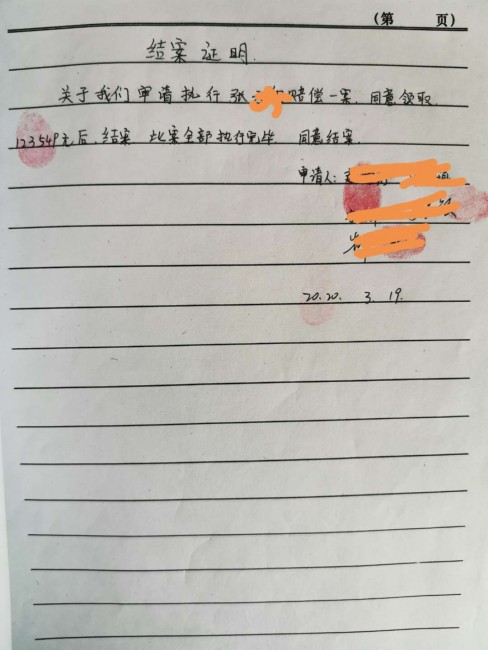 (第 页)
结案证明.
关于我们申请执行张 赔偿一案.同意领取
123549元后.结案 此案全部执行完毕 同意结案.
申请人:
2020. 3. 19.